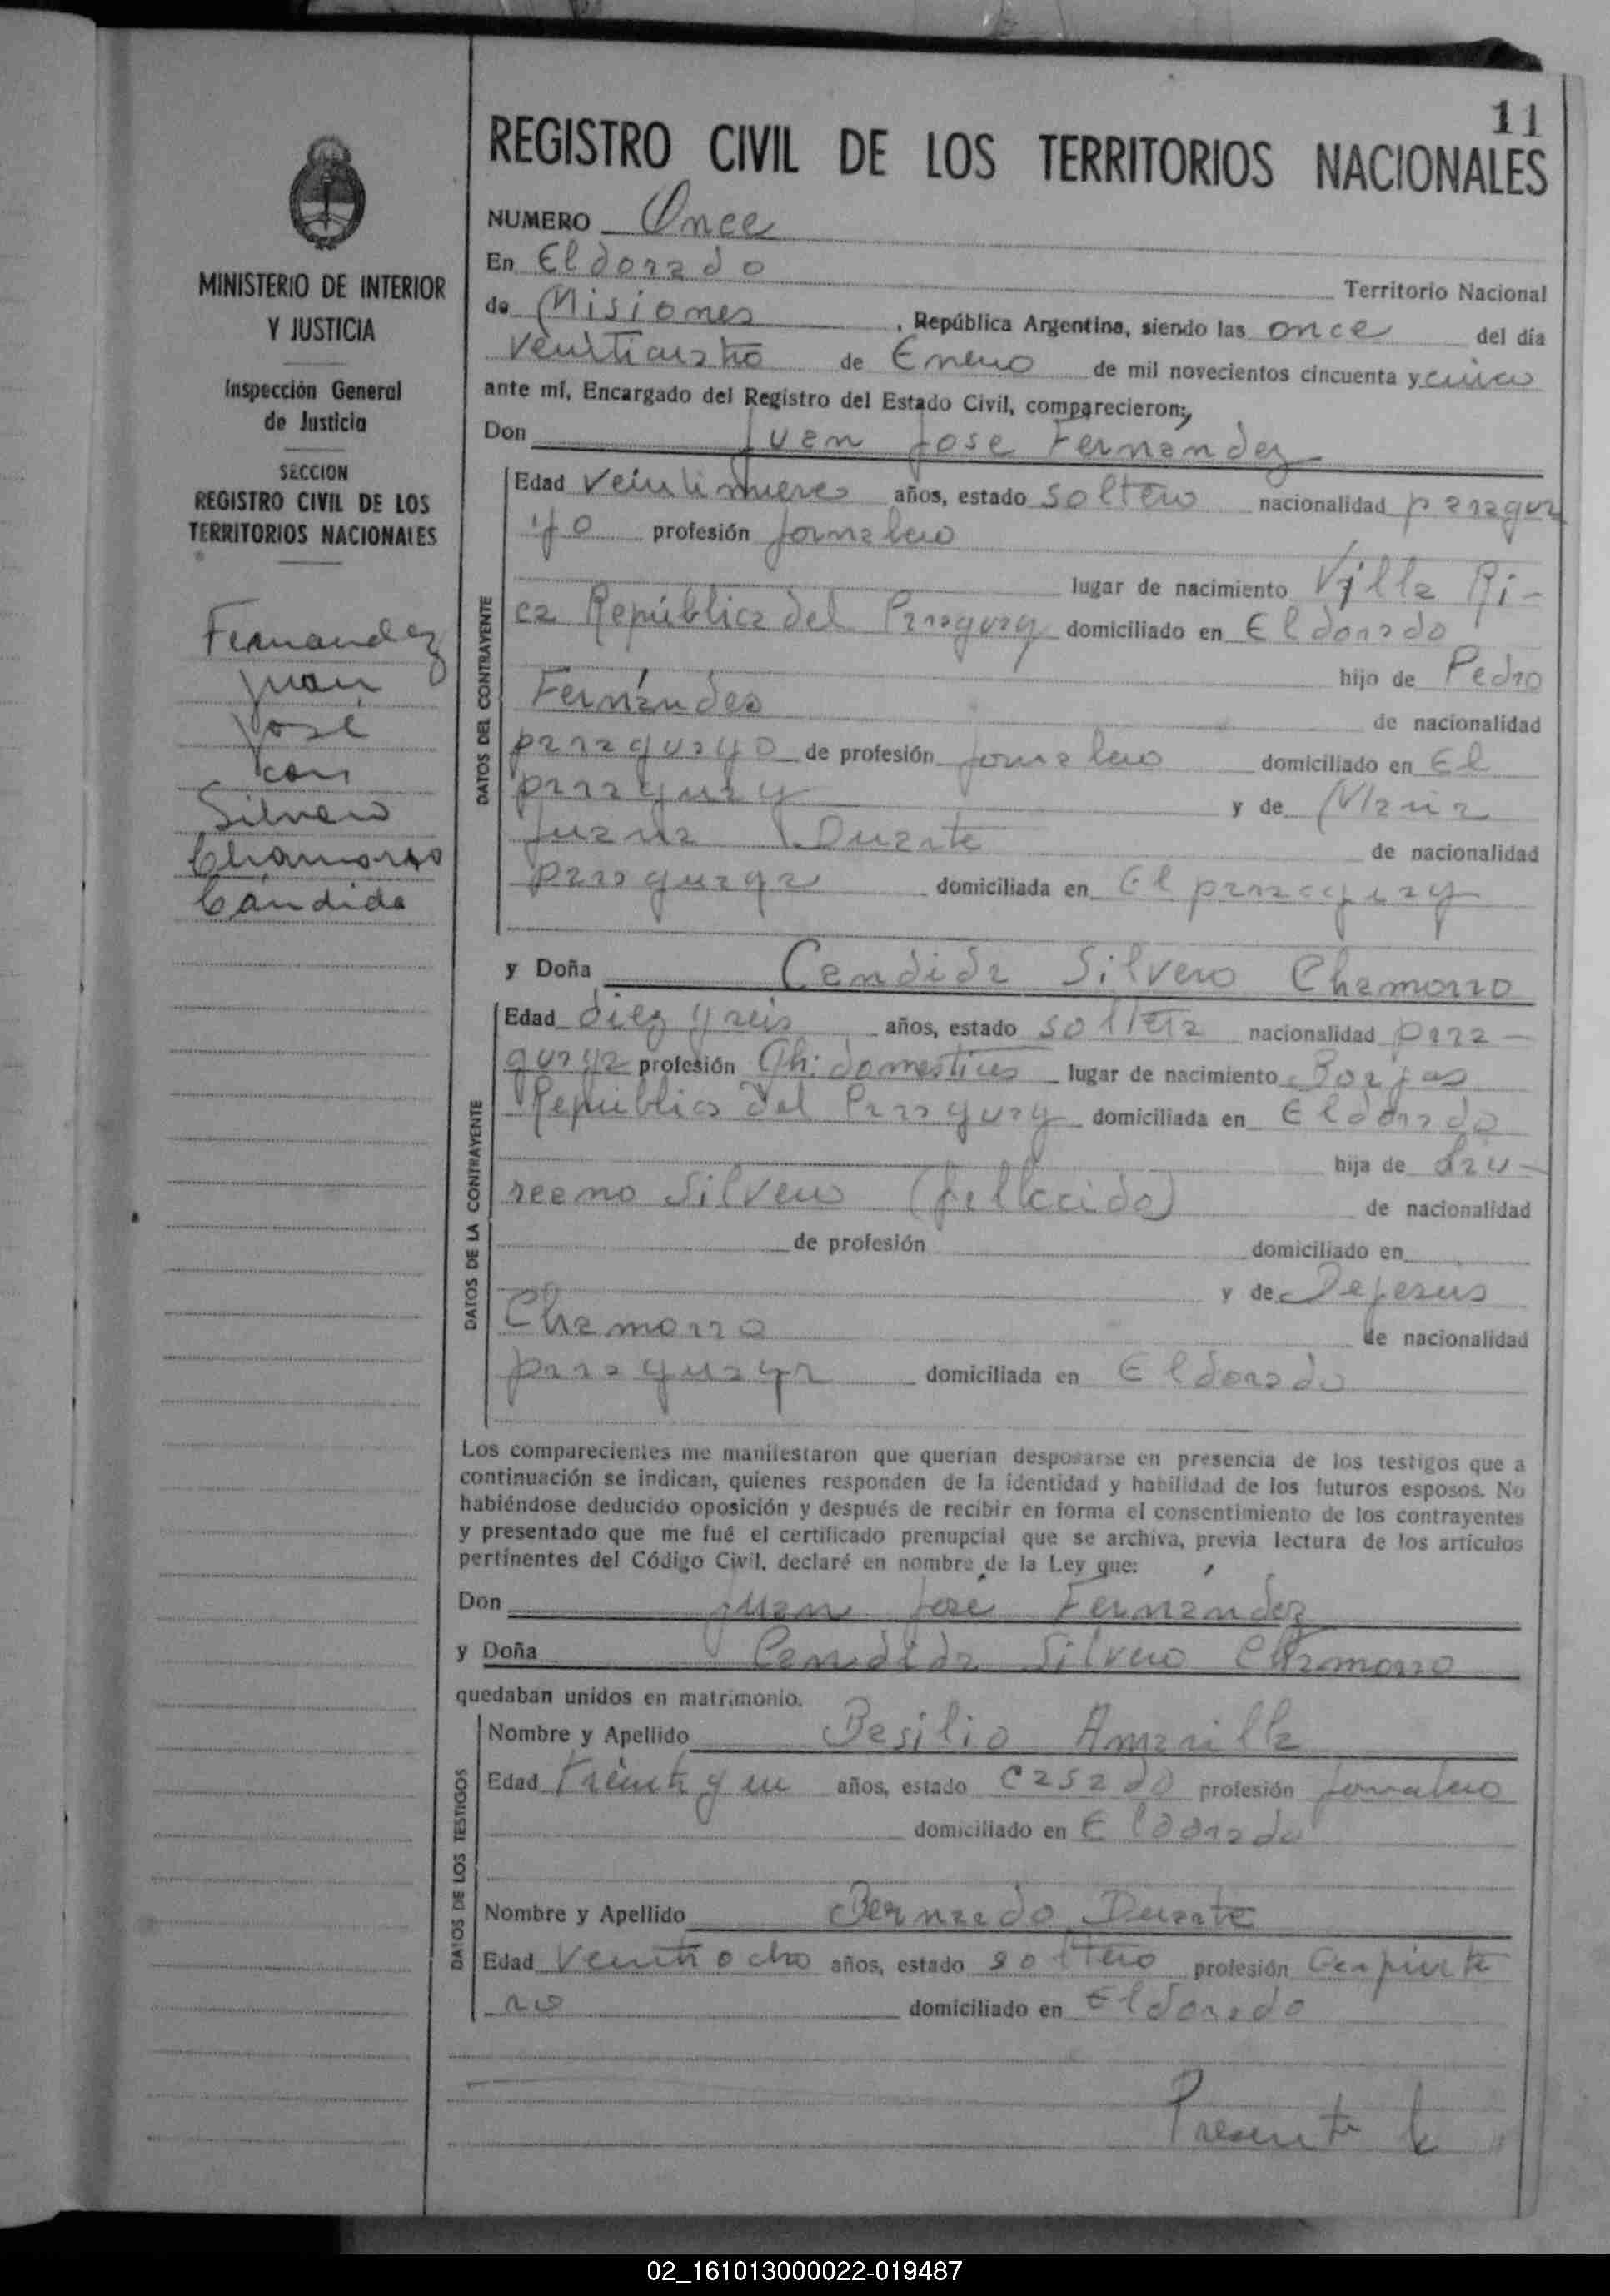 11
REGISTRO CIVIL DE LOS TERRITORIOS NACIONALES
MINISTERIO DE INTERIOR
Y JUSTICIA
Inspección General
de Justicia
SECCION
REGISTRO CIVIL DE LOS
TERRITORIOS NACIONALES
Fernandez
Juan
José
con
Silvero
Chamorro
Cándida
NUMERO Once
En Eldorado
Territorio Nacional
de Misiones, República Argentina, siendo las once del día
veinticuatro de Enero de mil novecientos cincuenta y cinco
ante mí, Encargado del Registro del Estado Civil, comparecieron:
Don Juan Jose Fernandez
DATOS DEL CONTRAYENTE
Edad veintinueve años, estado soltero nacionalidad paragua
yo profesión jornalero
lugar de nacimiento Villa Ri-
ca República del Paraguay domiciliado en Eldorado
hijo de Pedro
Fernández de nacionalidad
paraguayo de profesión jornalero domiciliado en El
paraguay y de Maria
Juana Duarte de nacionalidad
paraguaya domiciliada en El paraguay
y Doña Candida Silvero Chamorro
DATOS DE LA CONTRAYENTE
Edad diez y seis años, estado soltera nacionalidad para-
guaya profesión Qh: domesticos lugar de nacimiento Borjas
República del Paraguay domiciliada en Eldorado
hija de
Silvero (fallecido) de nacionalidad
de profesión domiciliado en
y de Dejesus
Chamorro de nacionalidad
paraguaya domiciliada en Eldorado
Los comparecientes me manifestaron que querían desposarse en presencia de los testigos que a
continuación se indican, quienes responden de la identidad y habilidad de los futuros esposos. No
habiéndose deducido oposición y después de recibir en forma el consentimiento de los contrayentes
y presentado que me fué el certificado prenupcial que se archiva, previa lectura de los artículos
pertinentes del Código Civil, declaré en nombre de la Ley que:
Don Juan José Fernández
y Doña Candida Silvero Chamorro
quedaban unidos en matrimonio.
DATOS DE LOS TESTIGOS
Nombre y Apellido Basilio Amarilla
Edad treinta y un años, estado casado profesión jornalero
domiciliado en Eldorado
Nombre y Apellido Bernardo Duarte
Edad veintiocho años, estado soltero profesión Carpinte
ro domiciliado en Eldorado
Presente la
02_161013000022-019487